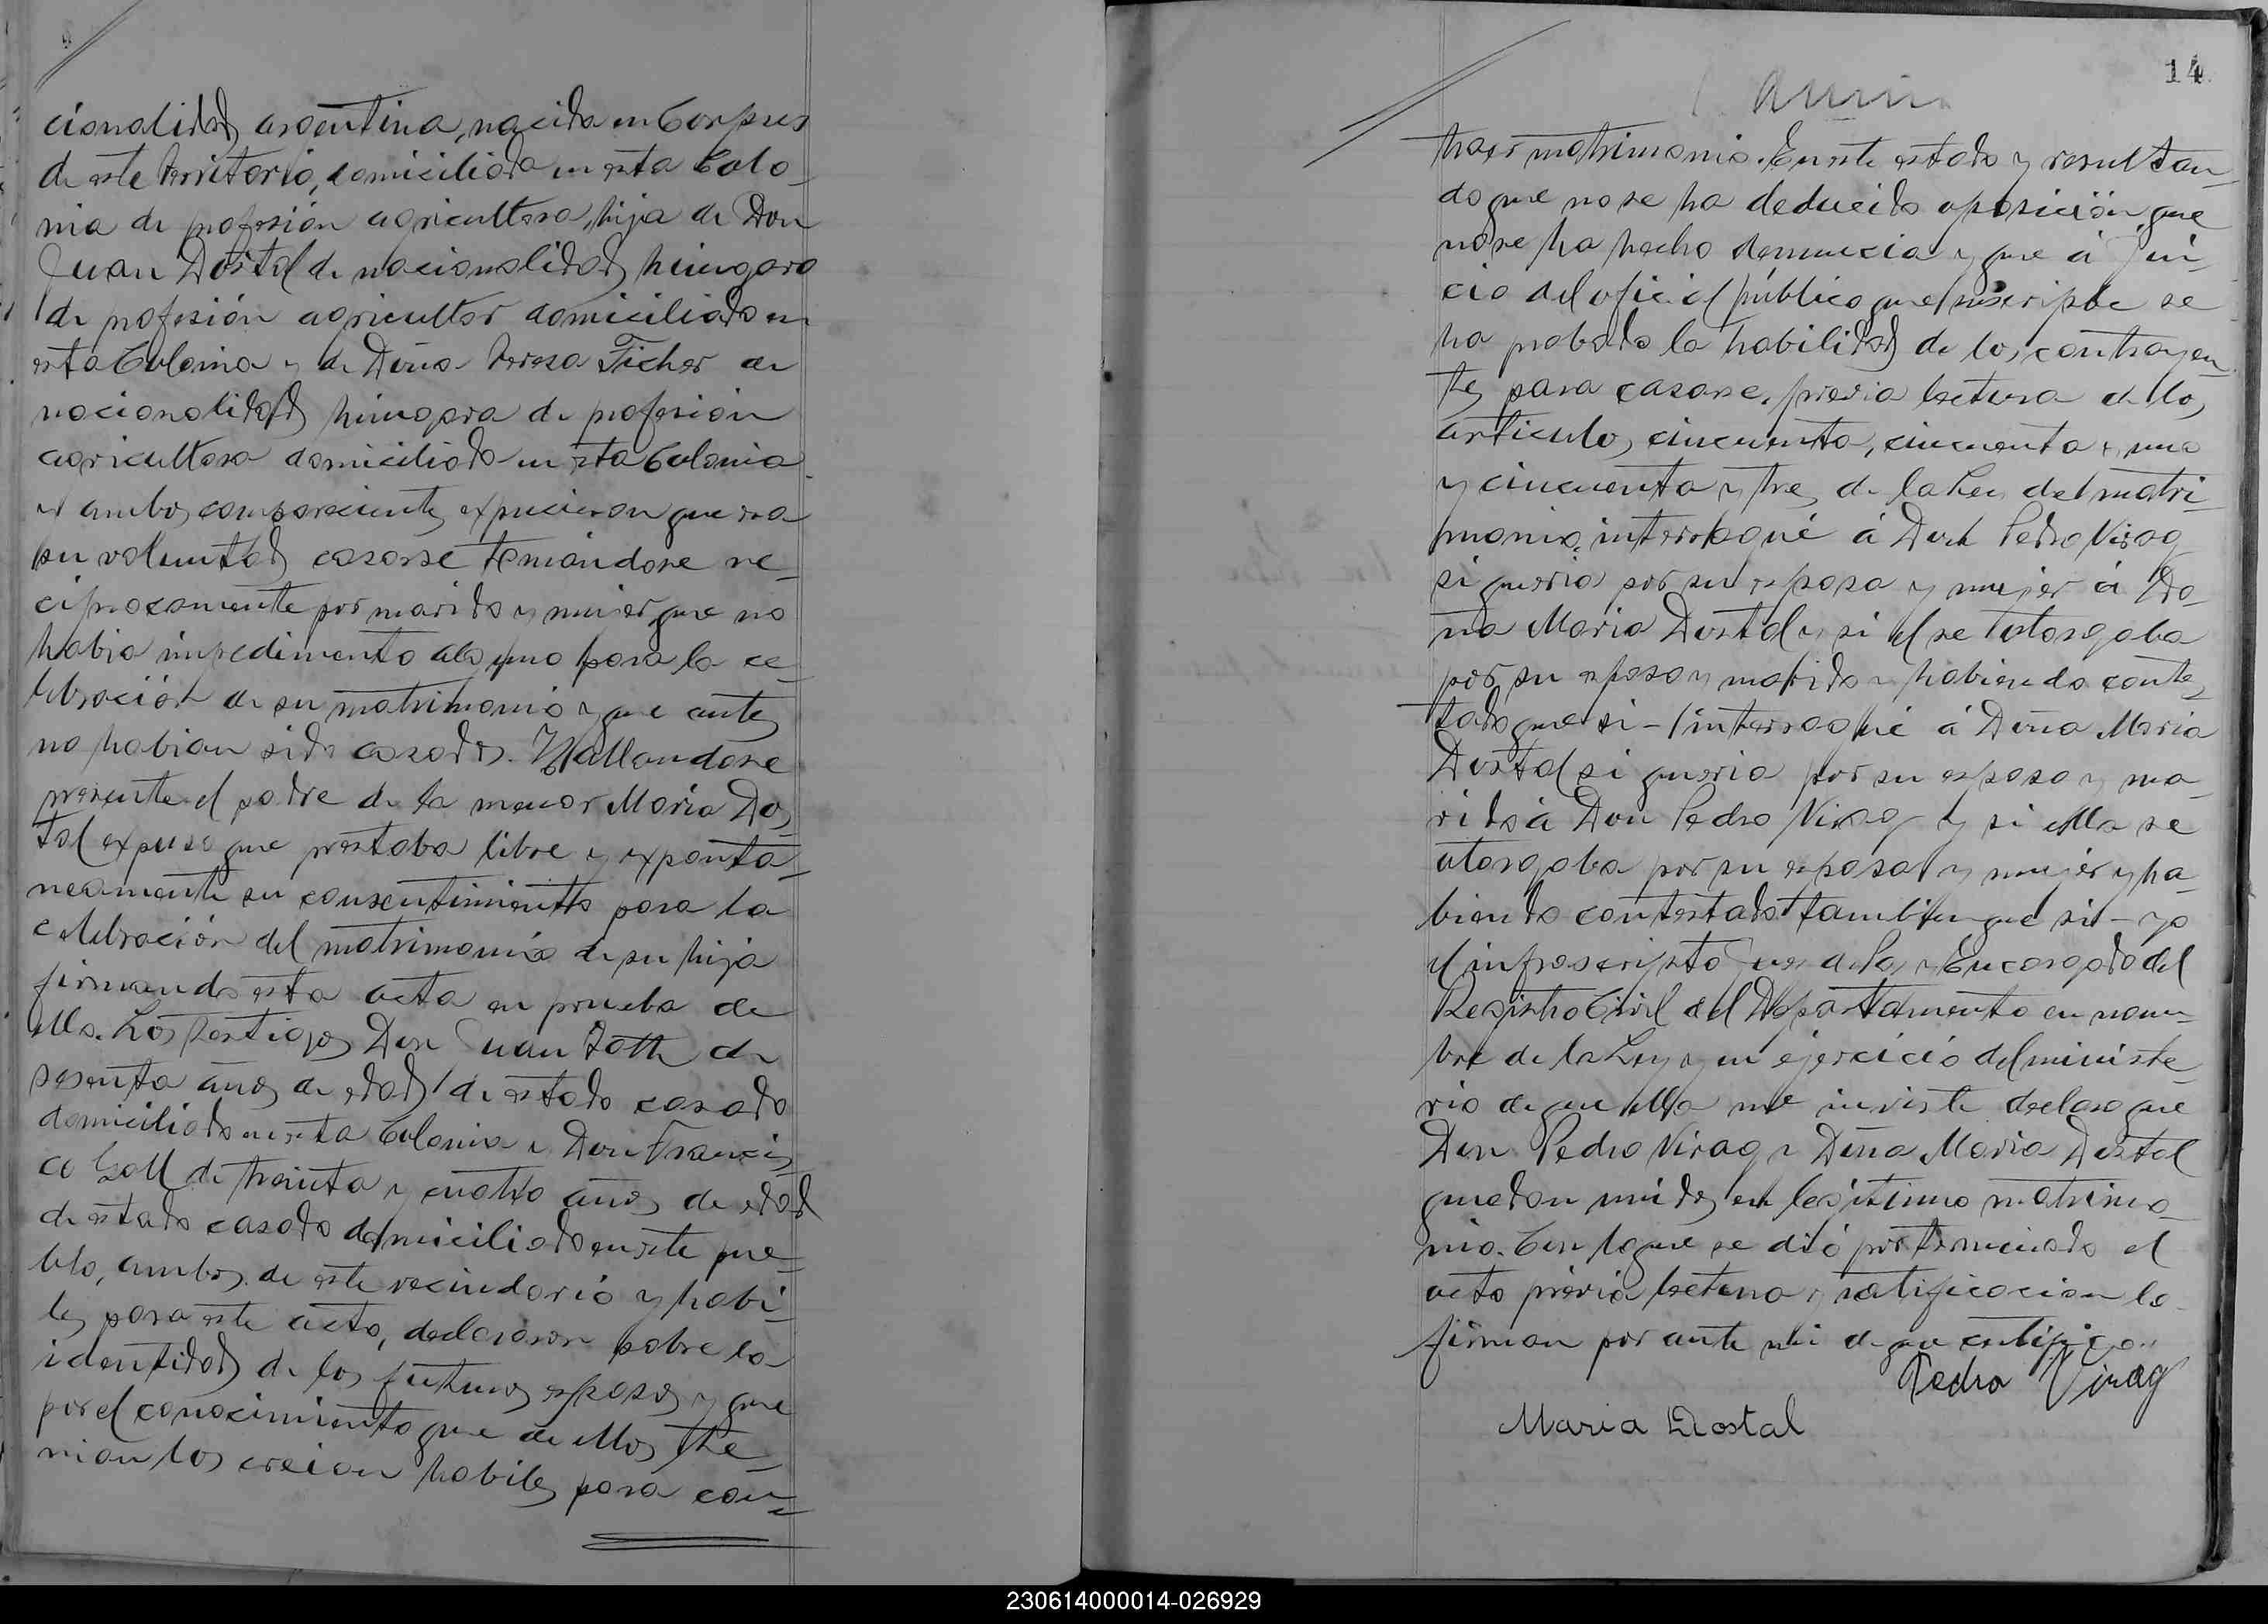 cionalidad argentina, nacida en Corpus
de este territorio, domiciliada en esta Colo-
nia de profesión agricultora, hija de Don
Juan Dostal de nacionalidad húngara
de profesión agricultor domiciliado en
esta Colonia y de Doña Teresa Ficher de
nacionalidad húngara de profesión
agricultora domiciliada en esta Colonia
y ambos comparecientes expucieron que era
su voluntad casarse tomándose re-
ciprocamente por marido y mujer, que no
habia impedimento alguno para la ce-
lebración de su matrimonio y que antes
no habian sido casados. Hallandose
presente el padre de la menor Maria Dos-
tal expuso que prestaba libre y exponta-
neamente su consentimiento para la
celebración del matrimonio de su hija
firmando esta acta en prueba de
ello. Los testigos Don Juan Toth de
sesenta años de edad de estado casado
domiciliado en esta Colonia y Don Francis-
co de treinta y cuatro años de edad
de estado casado domiciliado en este pue-
blo, ambos de este vecindario y habi-
les para este acto, declararon sobre la
identidad de los futuros esposos y que
por el conocimiento que de ellos the-
nian los creian habiles para con-
14
traer matrimonio. En este estado y resultan-
do que no se ha deducido oposición, que
no se ha hecho denuncia y que á jui-
cio del oficial público que suscripbe se
ha probado la habilidad de los contrayen-
tes para casarse, previa lectura de los
articulos cincuenta, cincuenta y uno
y cincuenta y tres de la Ley del matri-
monio, interrogué á Don Pedro Virag
si queria por su esposa y mujer á Do-
ña Maria Dostal y si el se otorgaba
por su esposo y marido y habiendo contes-
tado que si - interrogué á Doña Maria
Dostal si queria por su esposo y ma-
rido á Don Pedro Virag y si ella se
otorgaba por su esposa y mujer y ha-
biendo contestado tambien que si - yo
el infrascripto Juez de Paz y Encargado del
Registro Civil del Departamento en nom-
bre de la Ley y en ejercicio del ministe-
rio de que ella me inviste declaro que
Don Pedro Virag y Doña Maria Dostal
quedan unidos en legitimo matrimo-
nio. Con lo que se dió por terminado el
acto previa lectura y ratificacion la
firman por ante mi de que certifico.
Pedro Virag
Maria Dostal
230614000014-026929